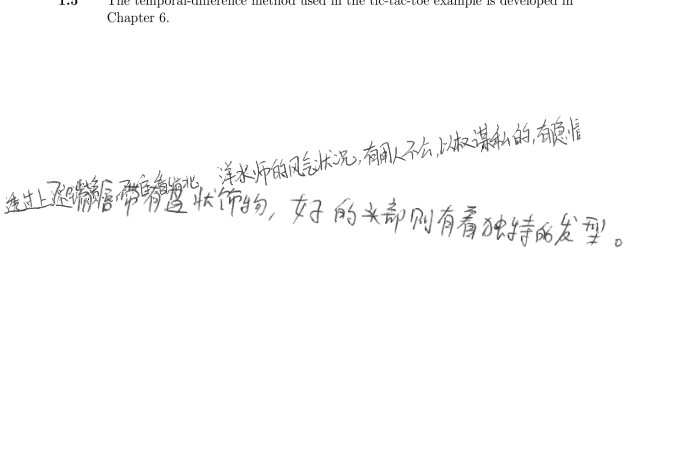 1.5 The temporal-difference method used in the tic-tac-toe example is developed in
Chapter 6.
洋水师的风气状况,有用人不公,以权谋私的,有隐信
透过上述
状饰物,女子的头部则有着独特的发型。